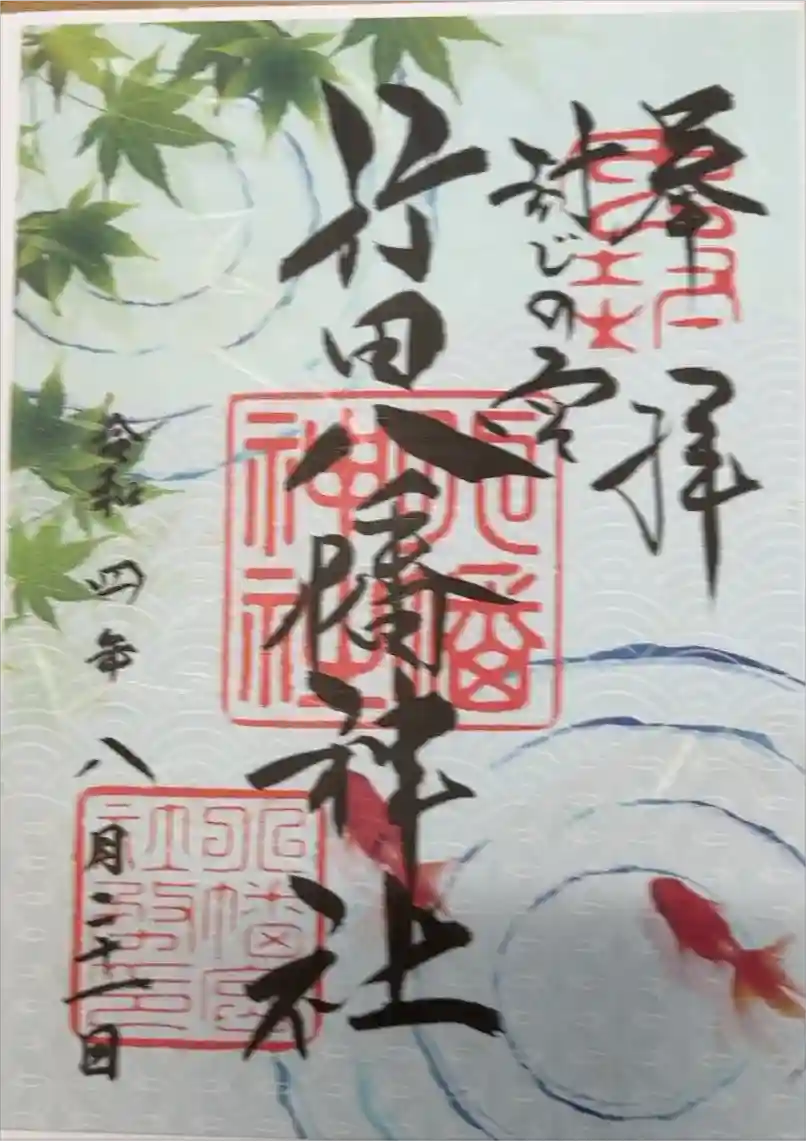 奉拝
封じの宮
行田八幡神社
八幡神社
令和四年八月二十一日